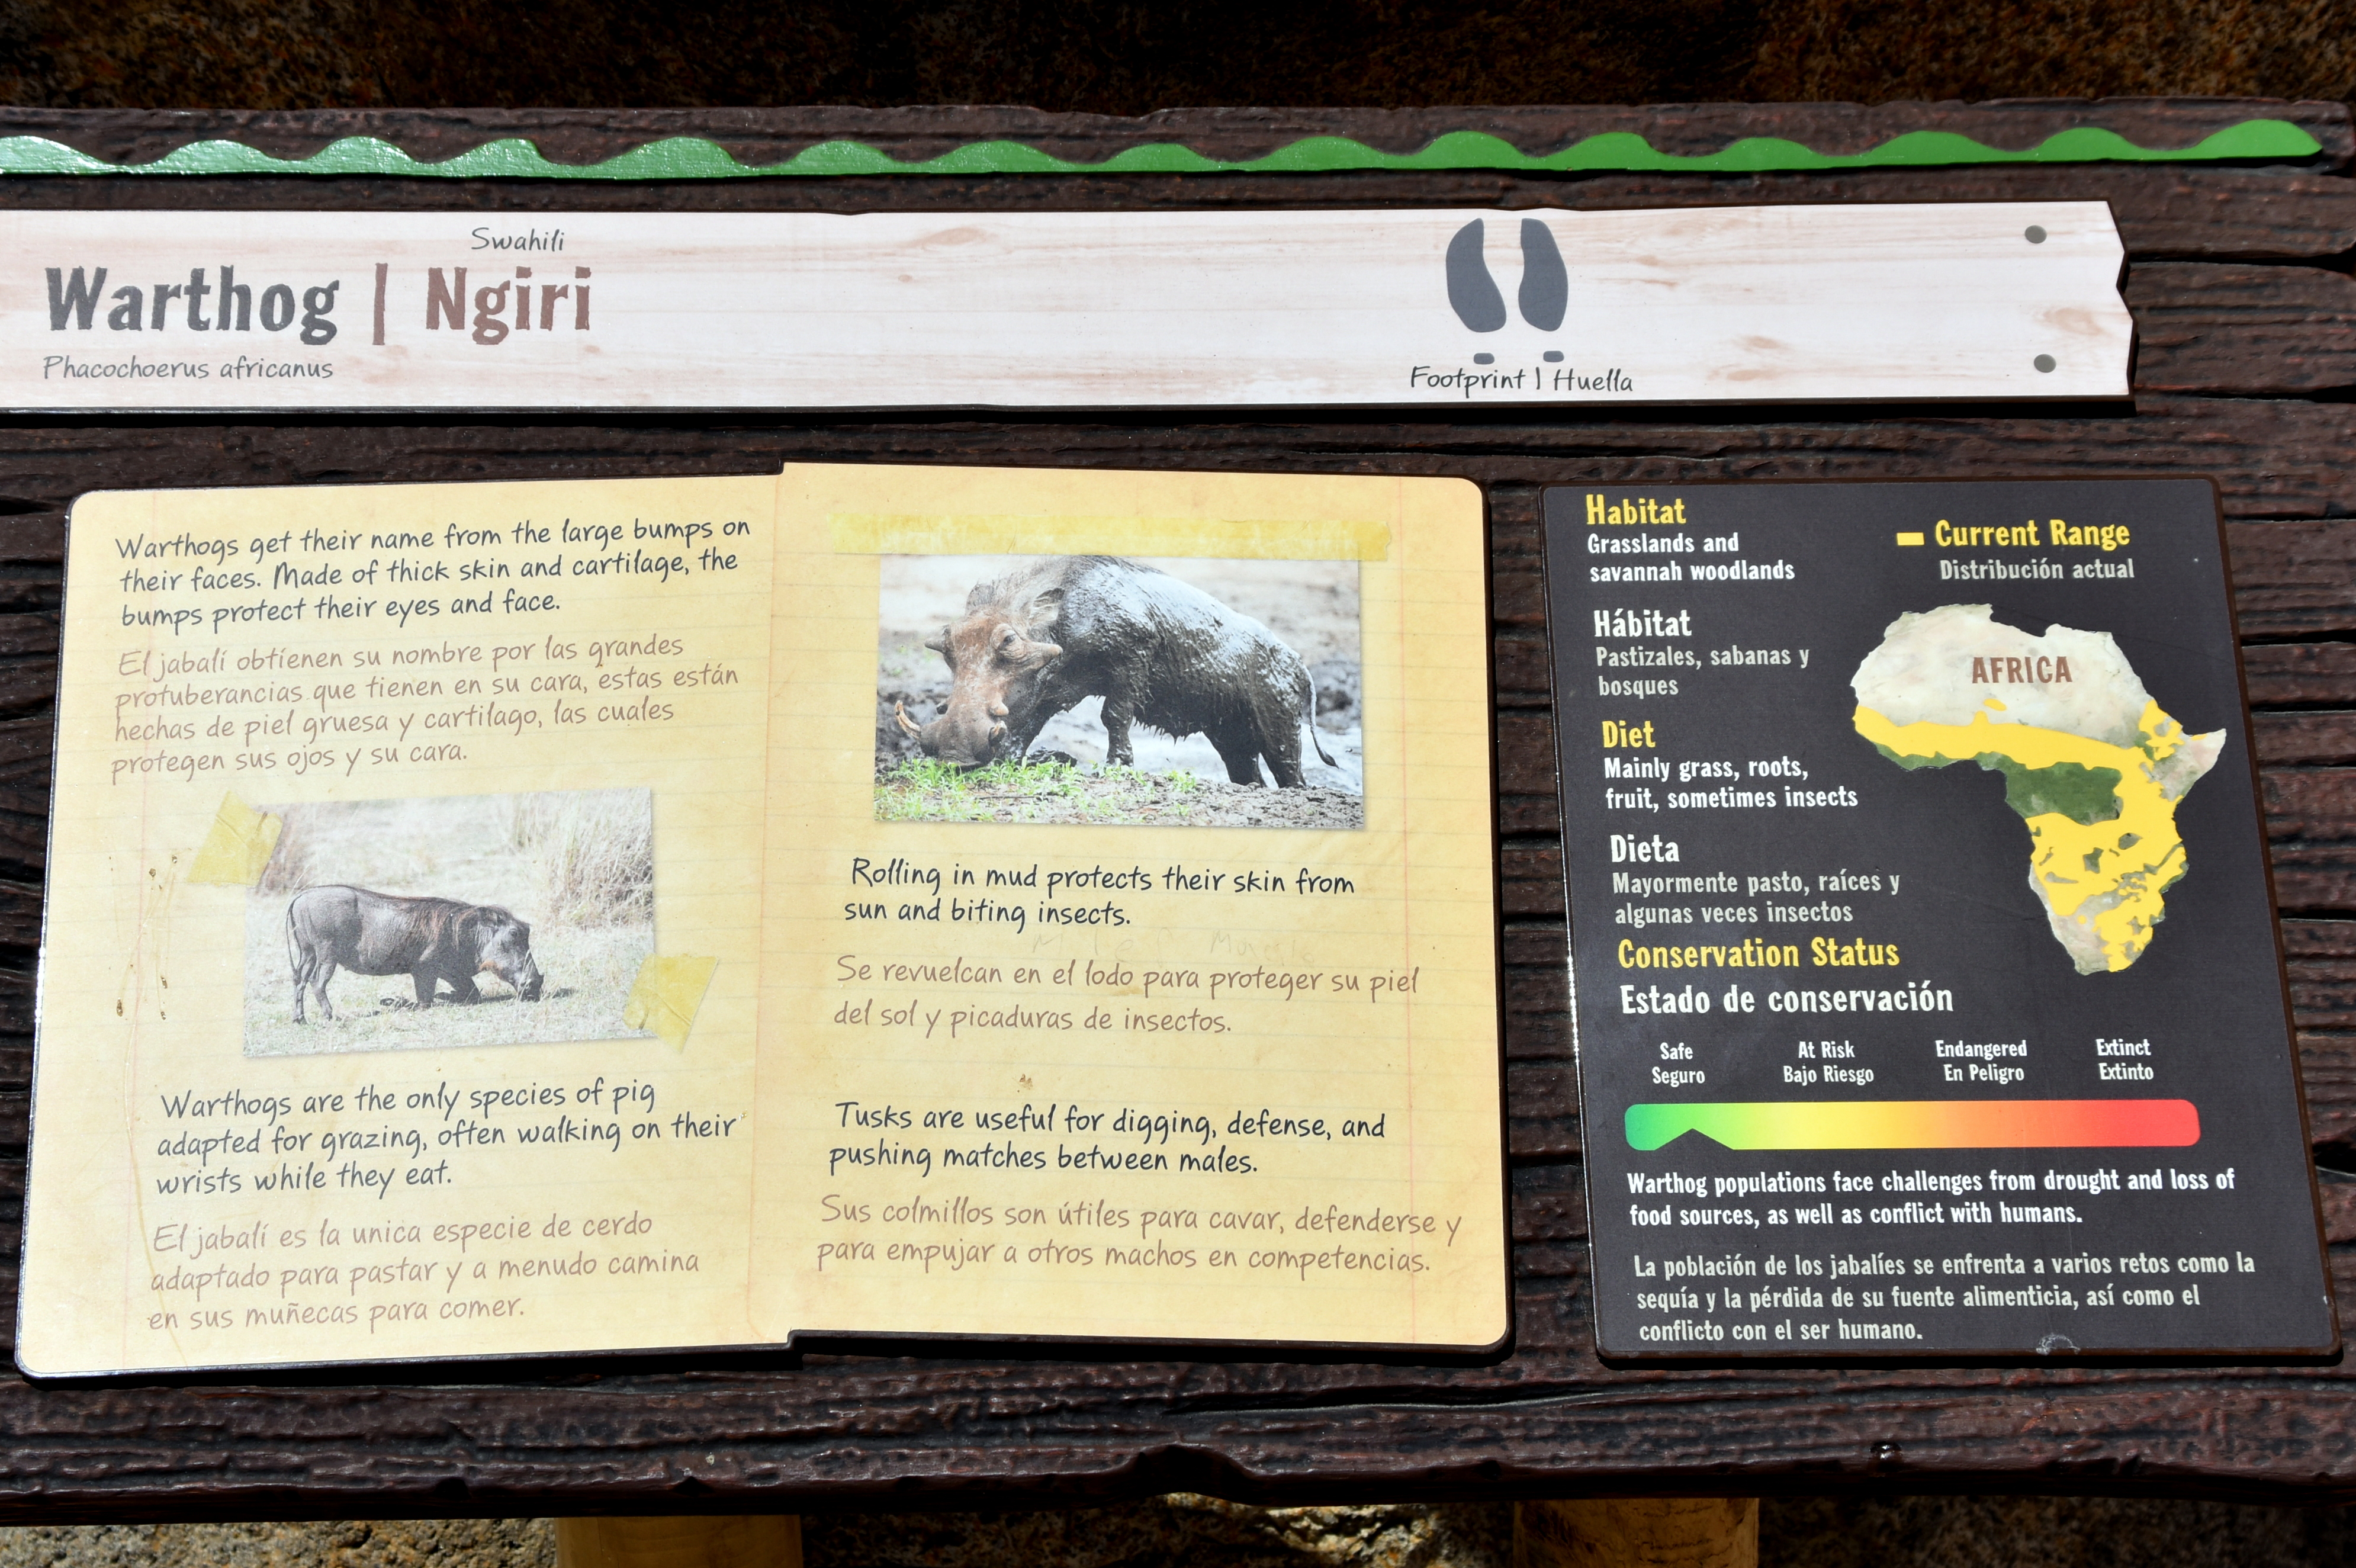 Swahili
Warthog | Ngiri
Phacochoerus africanus
Footprint | Huella
Warthogs get their name from the large bumps on
their faces. Made of thick skin and cartilage, the
bumps protect their eyes and face.
El jabalí obtienen su nombre por las grandes
protuberancias que tienen en su cara, estas están
hechas de piel gruesa y cartilago, las cuales
protegen sus ojos y su cara.
Warthogs are the only species of pig
adapted for grazing, often walking on their
wrists while they eat.
El jabalí es la unica especie de cerdo
adaptado para pastar y a menudo camina
en sus muñecas para comer.
Rolling in mud protects their skin from
sun and biting insects.
Se revuelcan en el lodo para proteger su piel
del sol y picaduras de insectos.
Tusks are useful for digging, defense, and
pushing matches between males.
Sus colmillos son útiles para cavar, defenderse y
para empujar a otros machos en competencias.
Habitat
Grasslands and
savannah woodlands
Hábitat
Pastizales, sabanas y
bosques
Diet
Mainly grass, roots,
fruit, sometimes insects
Dieta
Mayormente pasto, raíces y
algunas veces insectos
Current Range
Distribución actual
AFRICA
Conservation Status
Estado de conservación
Safe At Risk Endangered Extinct
Seguro Bajo Riesgo En Peligro Extinto
Warthog populations face challenges from drought and loss of
food sources, as well as conflict with humans.
La población de los jabalíes se enfrenta a varios retos como la
sequía y la pérdida de su fuente alimenticia, así como el
conflicto con el ser humano.